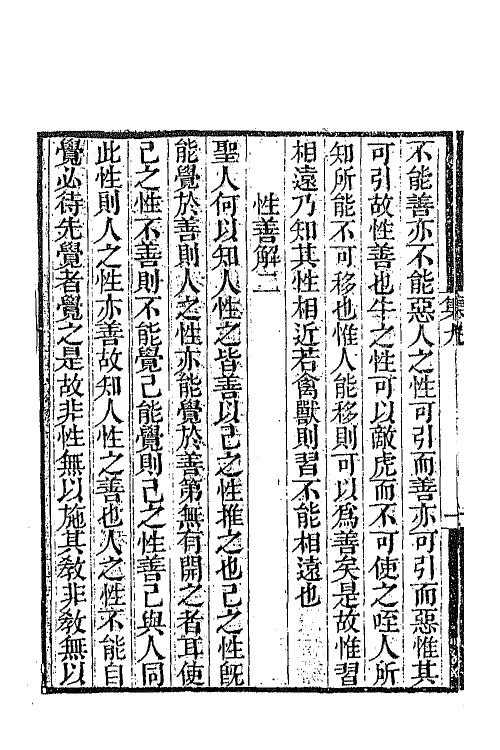 集九
一
不能善亦不能惡人之性可引而善亦可引而惡惟其
可引故性善也牛之性可以敵虎而不可使之咥人所
知所能不可移也惟人能移則可以為善矣是故惟習
相遠乃知其性相近若禽獸則習不能相遠也
性善解二
聖人何以知人性之皆善以己之性推之也己之性旣
能覺於善則人之性亦能覺於善第無有開之者耳使
己之性不善則不能覺己能覺則己之性善己與人同
此性則人之性亦善故知人性之善也人之性不能自
覺必待先覺者覺之是故非性無以施其敎非敎無以